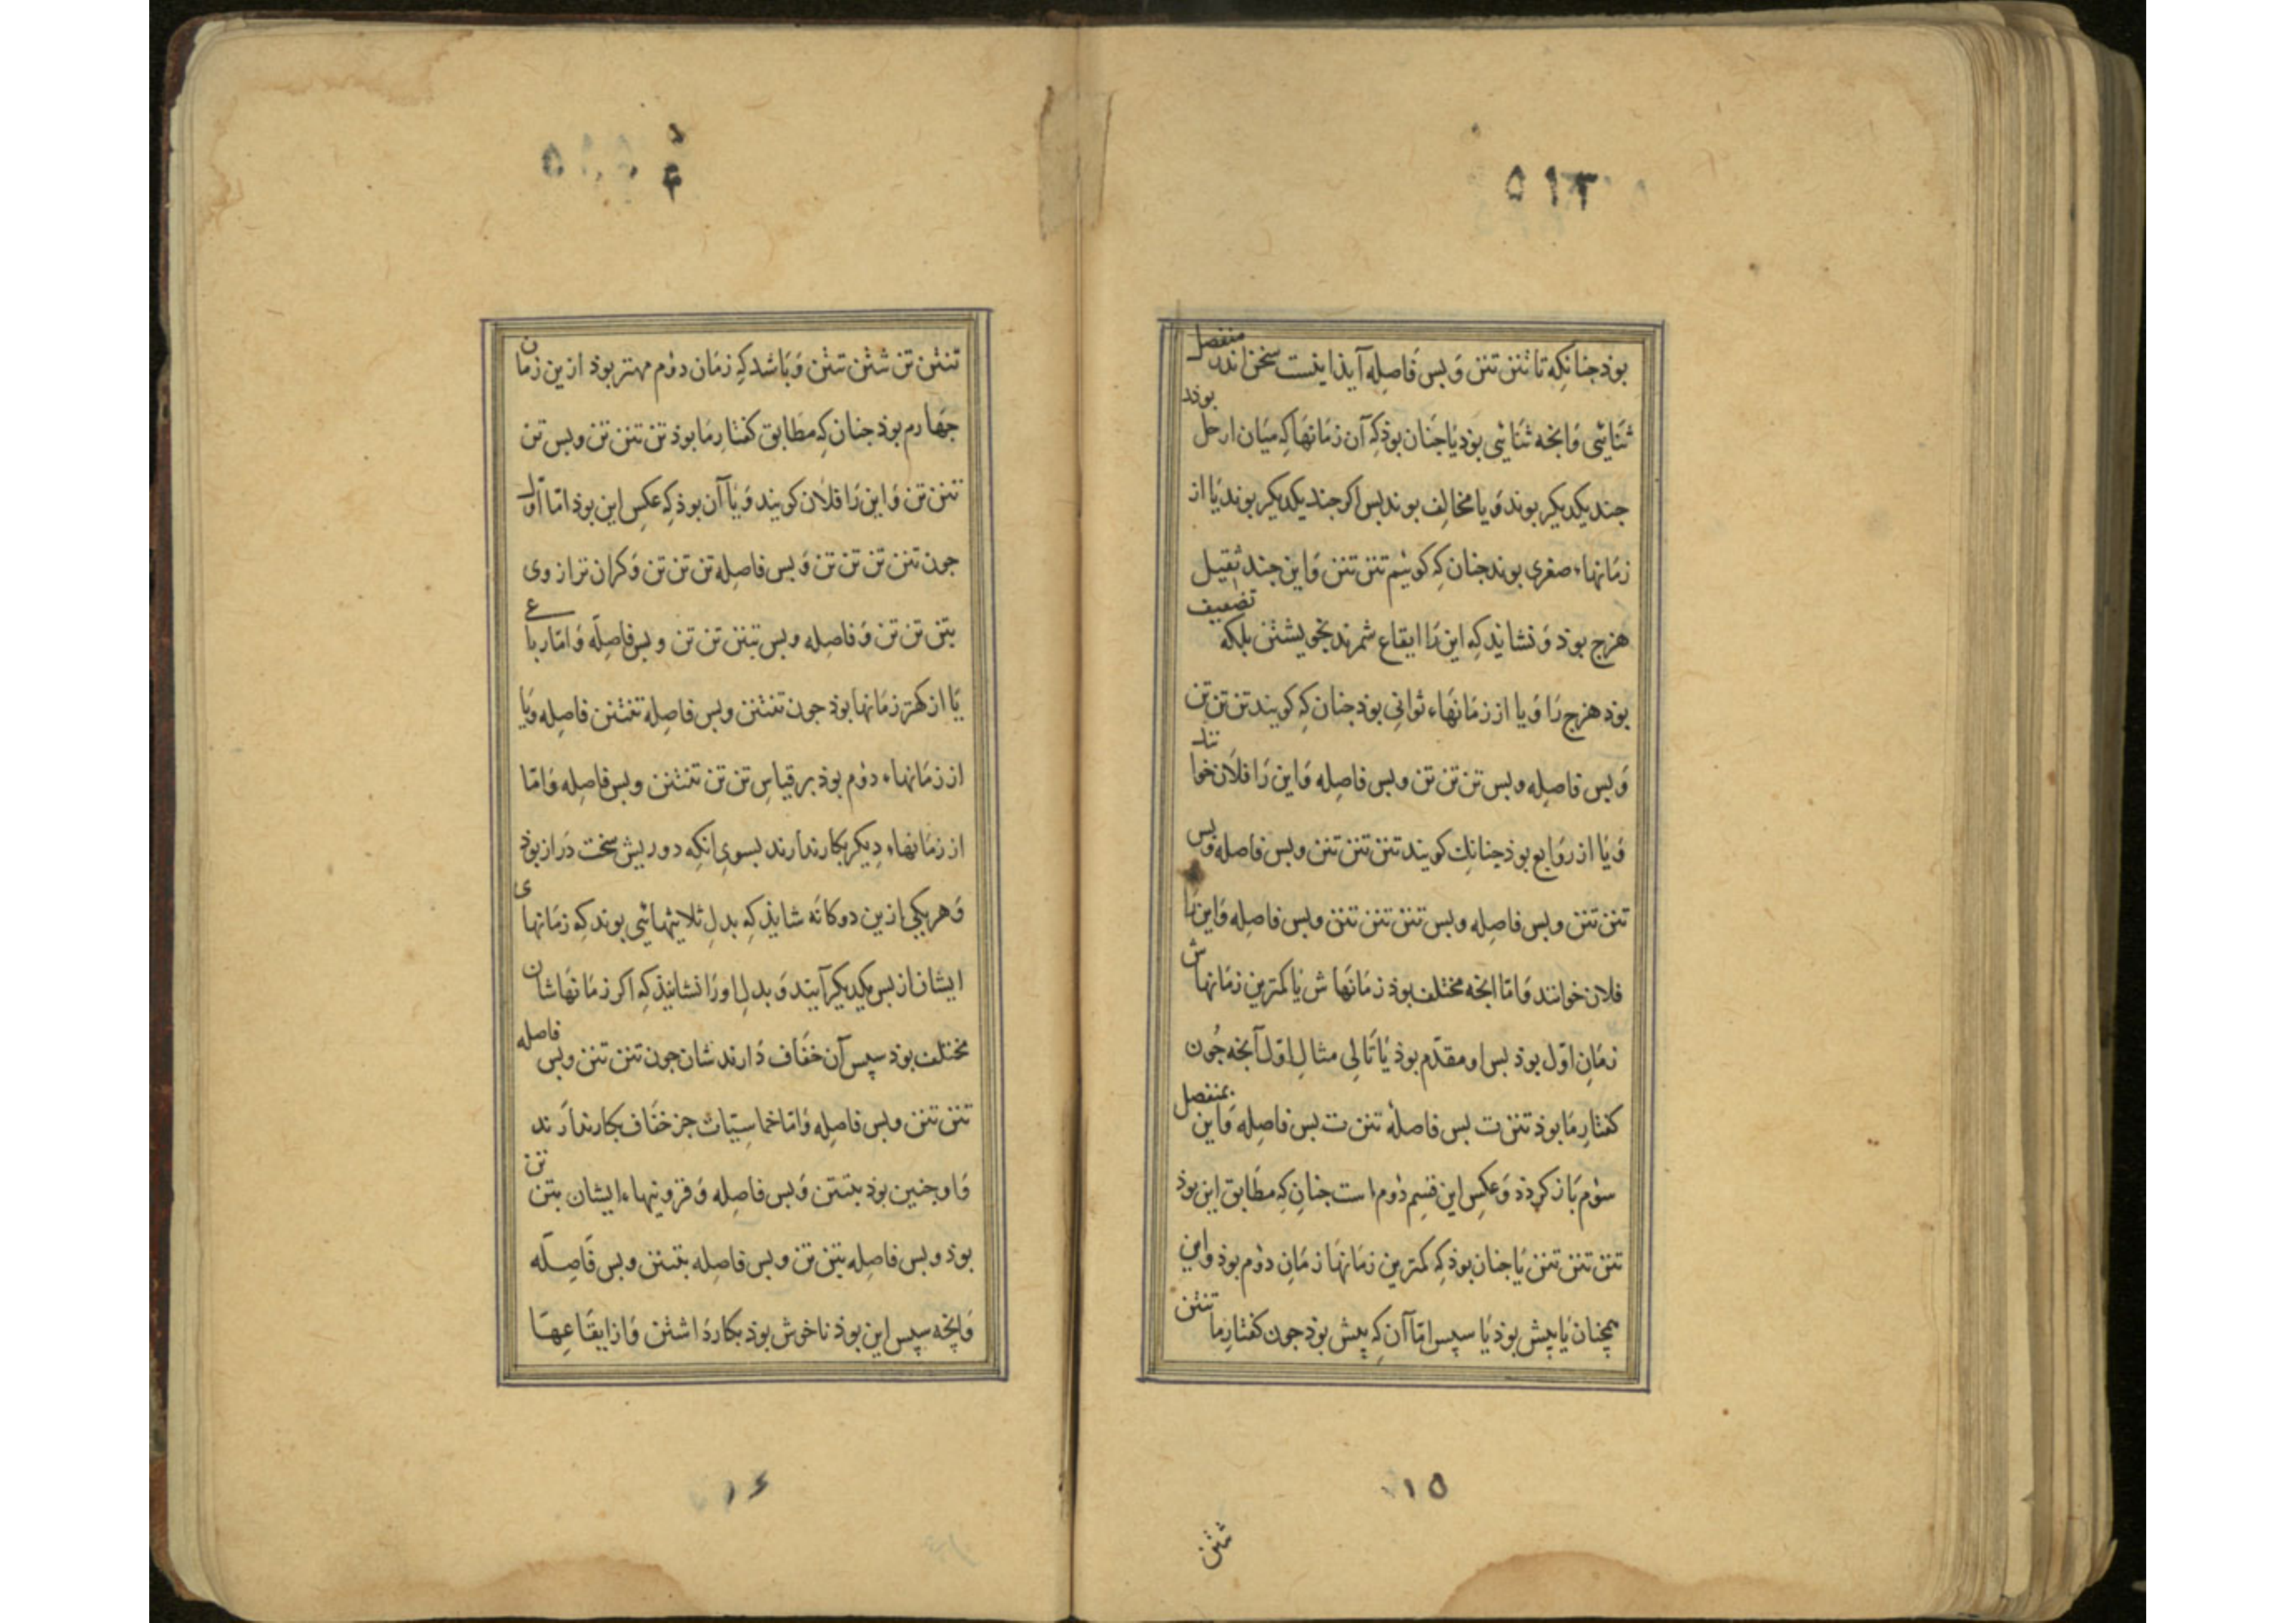 ۵۱۳
بوذ جنانکه تا تننن تننن وَ بس فاصِله آیذ اینست سخن اندر منفصل
ثنایٔی وَ انجه ثنایٔی بوَد یا جَنان بوذ کِه آن زمانهَا کِه میَان ارجل بوند
جند یکدیکر بوند وَ یا مخالِف بوند بس اکر جند یکدیکر بوند یَا از
زمَانهاء صغری بوند جنان کِه کوییٔم تننن تننن وَ این جند ثقیل
هزج بوذ وَ نشایذ کِه این رَا ایقاع شمرند بخویشتن بلکه تضعیف
بوذ هزج رَا وَ یا از زمَانهَاء ثوانی بوذ جنان کِه کویند تن تن تن
وَ بس فاصِله و بس تن تن تن و بس فاصِله وَ این رَا فلان خوانند
وَ یَا از روَابع بوذ جنانك کویند تننن تننن تننن و بس فاصله و بس
تننن تننن و بس فاصِله و بس تننن تننن تننن و بس فاصِله وَ این رَا
فلان خوانند وَ امّا انجه مختلف بوذ زمَانهَاش یَا کمترین زمَانهاش
زمَانِ اوّل بوذ بس او مقدّم بوذ یَا تَالی مثالِ اوّل آنجه جُون
کفتارِ مَا بوذ تننن ت بس فاصلهٔ تننن ت بس فاصِله وَ این بمنفصل
سوٛم بَاز کردَذ وَ عکسِ این قسِم دوٛم است جنان کِه مطَابق این بوذ
تننن تننن تننن یَا جنان بوذ کِه کمترین زمَانهَا زمَانِ دوٛم بوذ و این
همچنان یَا پیش بوذ یَا سپس امّا آن کِه پیش بوذ جون کفتارِ ما تنتن
۱۵
تنتن تن تنتن تنتن وَ بَاشد کِه زمَان دوٛم مهتر بوذ ازین زمان
جهَارم بوذ جنان کِه مطَابق کفتارِ مَا بوذ تن تننن تن و بس تن
تننن تن وَ این رَا فلَان کویند وَ یَا آن بوذ کِه عکسِ این بوذ امّا اوّل
جون تننن تن تن تن وَ بس فاصله تن تن تن وَ کران تر از وی
بتن تن تن وَ فاصِله و بس تننن تن تن و بس فاصِلَه وَ امّا رباع
یَا از کهتر زمَانها بوذ جون تنتننن و بس فاصِله تنتننن فاصِله و یَا
از زمَانهاء دوٛم بوذ بر قیاسِ تن تن تنتننن و بس فاصِله وَ امّا
از زمَانهاء دِیکر بکار ندارند بسویِ انکِه دوریش سخت دَراز بوذ
وَ هر یکی ازین دوکانَه شایذ کِه بدلِ ثلایثهایٔی بوند کِه زمَانهای
ایشان از بس یکدیکر آیند وَ بدلِ او رَا نشایذ کِه اکر زمَانهَاشان
مختلف بوذ سپس آن خفَاف دَارند شان جون تننن تننن و بس فاصله
تننن تننن و بس فاصِله وَ امّا خماسیّات جز خفَاف بکار ندَارند
وَ او جنین بوذ بتنتن وَ بس فاصِله وَ فزونیهاء ایشان بتن تن
بوذ و بس فاصِله بتن تن و بس فاصِله بتنتنن و بس فَاصِلَه
وَ انچه سپس این بوذ ناخوش بوذ بکار دَاشتن وَ از ایقَاعِهَا
۱۶